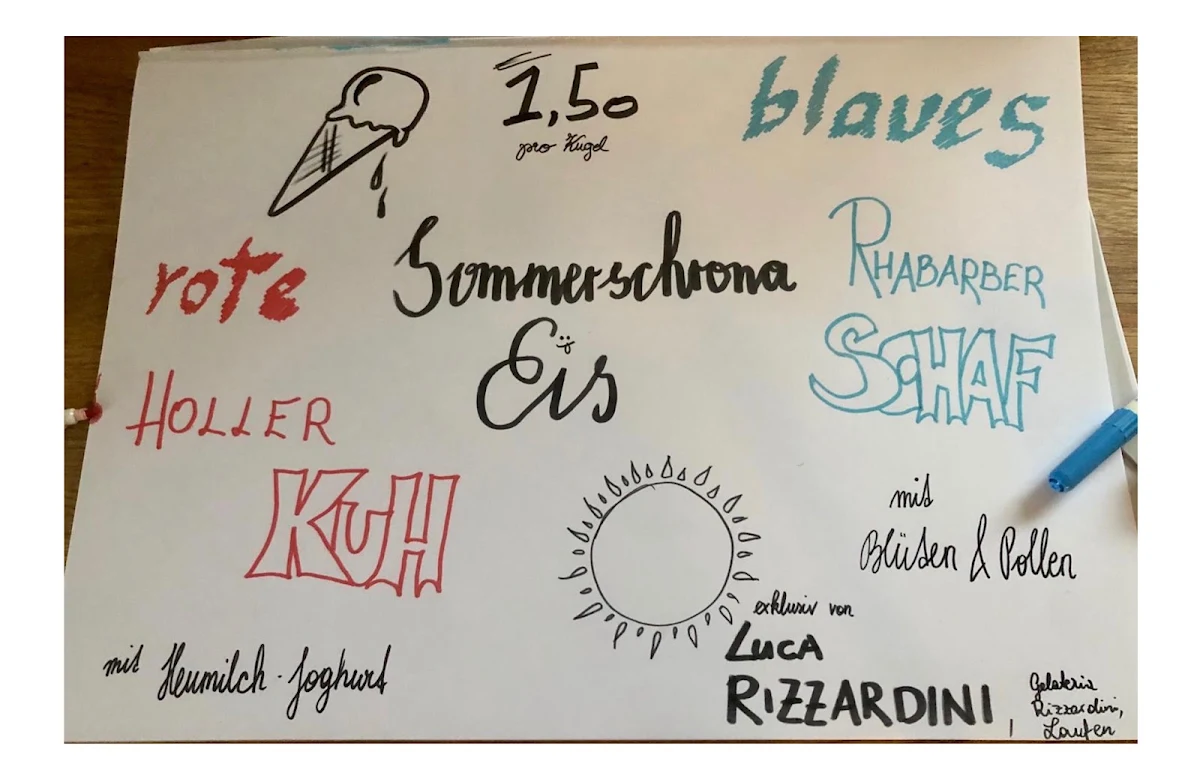 1,50
pro Kugel
blaves
rote
Sommerschrona
Eis
RHABARBER
SCHAF
HOLLER
KUH
mit
Blüten & Pollen
mit Heumilch-Joghurt
exklusiv von
LUCA
RIZZARDINI,
Gelateria
Rizzardini,
Laufen